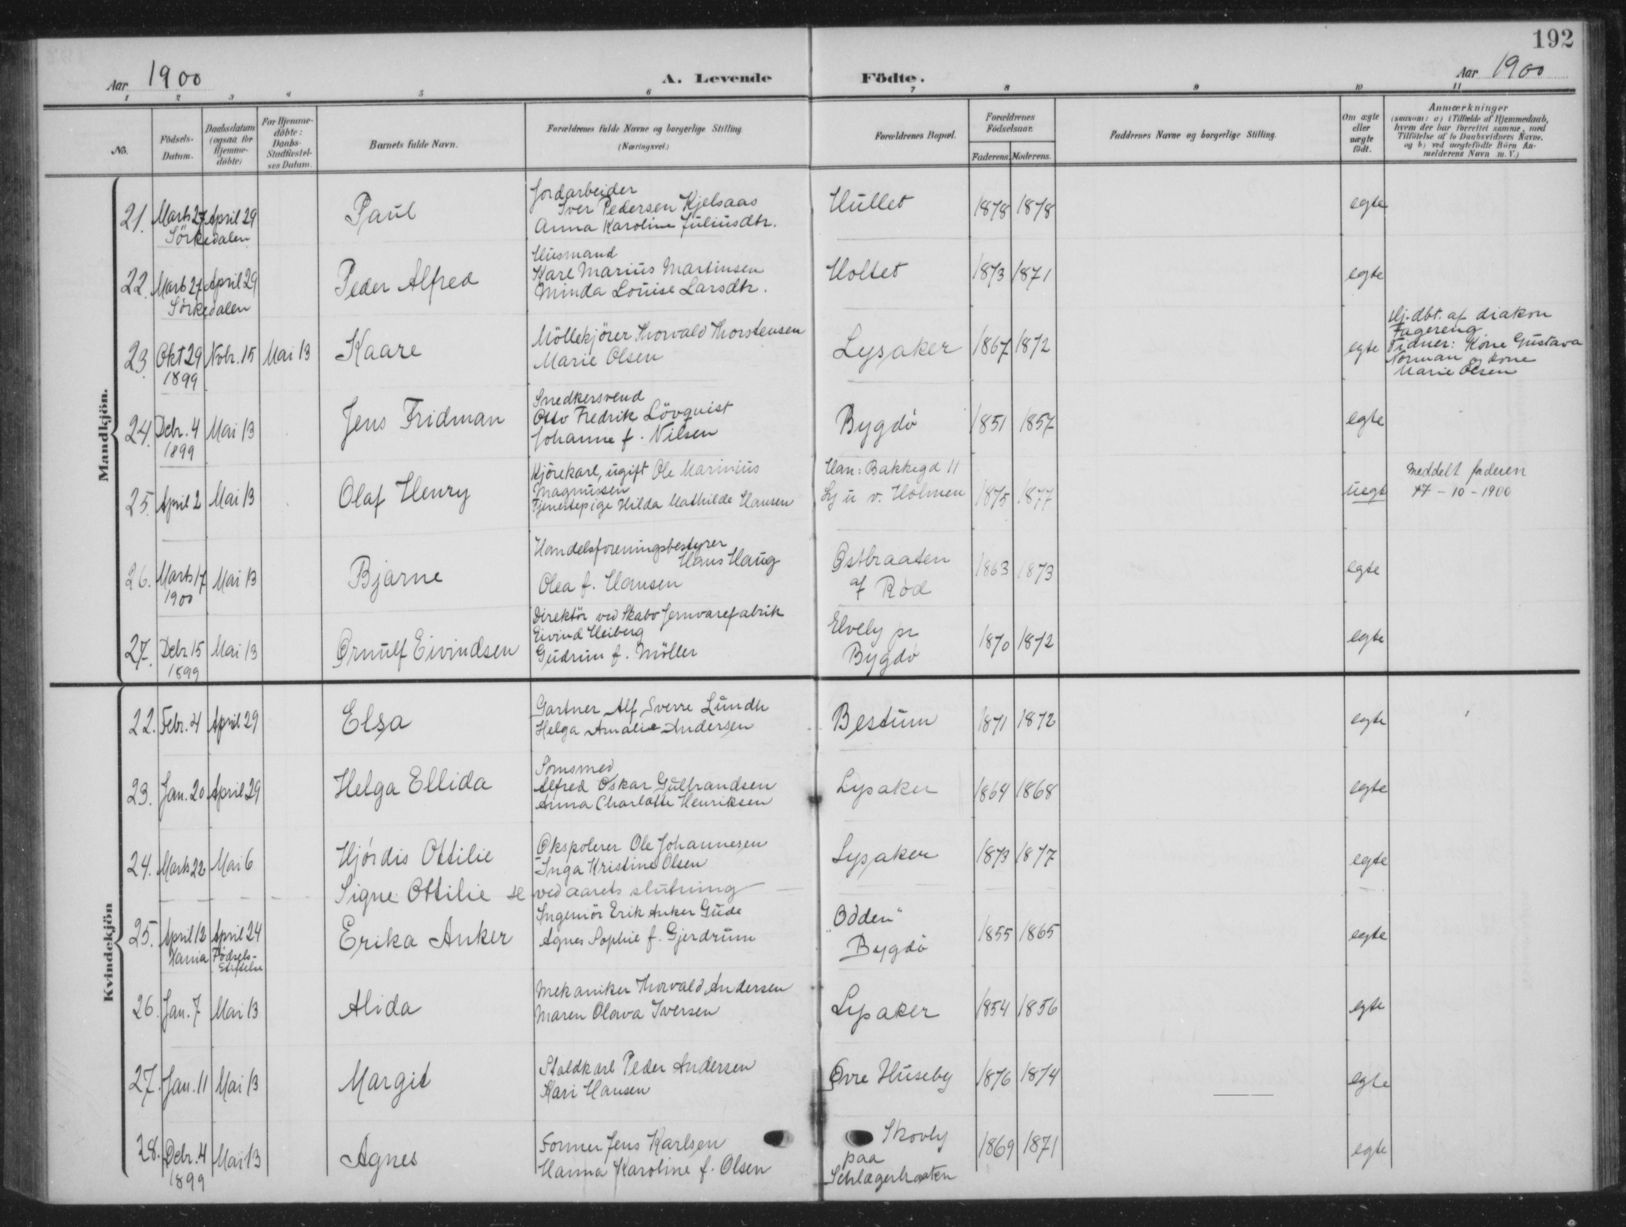 192
Aar 1900
A. Levende Födte.
Aar 1900
1 2 3 4 5 6 7 8 9 10 11
No.
Födsels-Datum.
Daabsdatum (ogsaa for Hjemme-döbte)
For Hjemme-döbte: Daabs-Stadfestel-ses Datum.
Barnets fulde Navn.
Forældrenes fulde Navne og borgerlige Stilling (Næringsvei)
Forældrenes Bopæl.
Forældrenes Födselsaar.
Faderens. Moderens.
Faddernes Navne og borgerlige Stilling.
Om ægte eller uægte födt.
Anmærkninger
(saasom: a) i Tilfælde af Hjemmedaab, hvem der har forrettet samme, med Tilföielse af to Daabsvidners Navne, og b) ved uægtefödte Börn An-melderens Navn m. V.)
Mandkjön.
21. Marts 27 April 29 Paul
Sörkedalen
Jordarbeider
Iver Pedersen Kjelsaas
Anna Karoline Juliusdtr.
Hullet 1878 1878 egte
22. Marts 27 April 29 Peder Alfred
Sörkedalen
Husmand
Karl Marius Martinsen
Minda Louise Larsdtr.
Holtet 1873 1871 egte
23. Okt 29 Novbr. 15 Mai 13 Kaare
1899
Möllekjörer Thorvald Thorstensen
Marie Olsen
Lysaker 1867 1872 egte
Hj. dbt. af diakon
Fagereng.
Vidner: Kone Gustava
Norman og kone
Marie Olsen
24. Debr. 4 Mai 13 Jens Fridman
1899
Snedkersvend
Otto Fredrik Lövquist
Johanne f. Nilsen
Bygdö 1851 1857 egte
25. April 2 Mai 13 Olaf Henry
Kjörekarl, ugift Ole Marinius
Magnussen
Tjenestepige Hilda Mathilde Hansen
Han: Bakkegd 11
v. Holmen 1875 1877 uegt
meddelt faderen
17-10-1900
26. Marts 17 Mai 13 Bjarne
1900
Handelsforeningsbestyrer
Hans Haug
Olea f. Hansen
Østbraaten
af Röd
1863 1873 egte
27. Debr 15 Mai 13 Ørnulf Eivindsen
1899
Direktör ved Skabo Jernvarefabrik
Eivind Heiberg
Gudrun f. Möller
Elvely pr
Bygdö
1870 1872 egte
Kvindekjön
22. Febr. 4 April 29 Elsa
Gartner Alf Sverre Lundh
Helga Amalie Andersen
Bestum 1871 1872 egte
23. Jan. 20 April 29 Helga Ellida
Alfred Oskar Gulbrandsen
Anna Charlotte Henriksen
Lysaker 1864 1868 egte
24. Marts 22 Mai 6 Hjördis Ottilie
Ole Johannesen
Inga Kristine Olsen
Lysaker 1873 1877 egte
Signe Ottilie se ved aarets slutning
25. April 12 April 24 Erika Anker
Födsels-
stiftelse
Ingeniör Erik Anker Gude
Agnes Sophie f. Gjerdrum
"Odden"
Bygdö
1855 1865 egte
26. Jan. 7 Mai 13 Alida
Mekaniker Thorvald Andersen
Maren Olava Iversen
Lysaker 1854 1856 egte
27. Jan. 11 Mai 13 Margit
Staldkarl Peder Andersen
Kari Hansen
Övre Huseby 1876 1874 egte
28. Debr. 4 Mai 13 Agnes
1899
Former Jens Karlsen
Hanna Karoline f. Olsen
Skovly
paa
1869 1871 egte